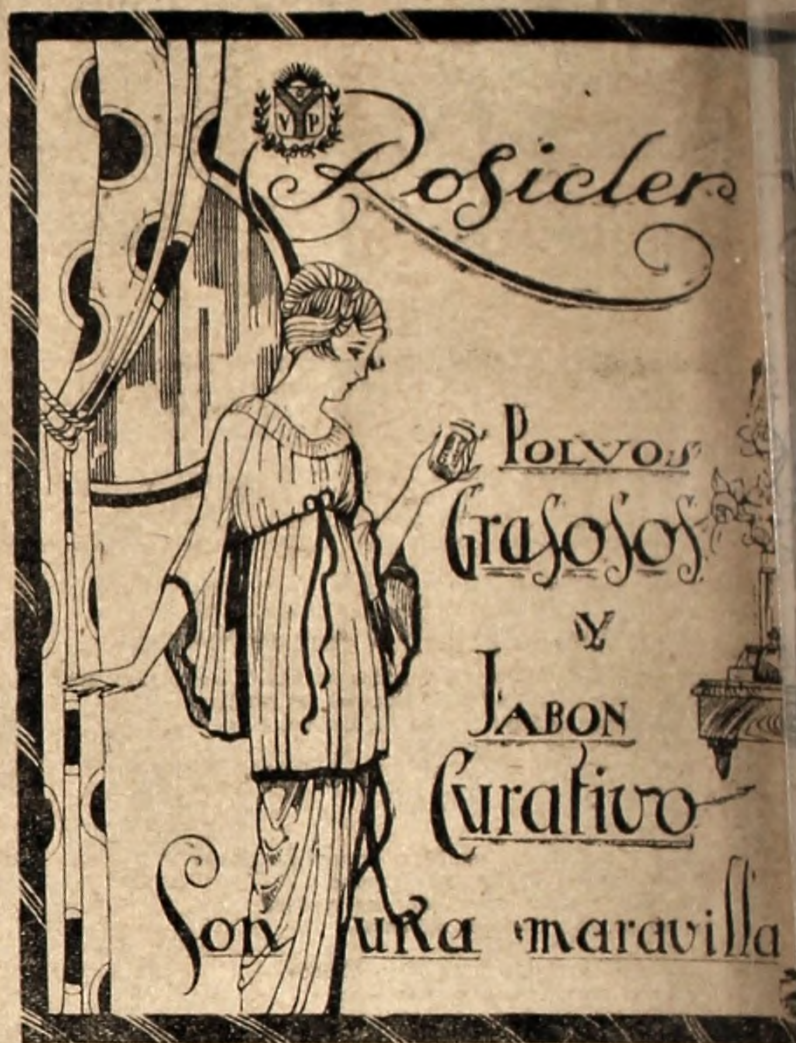 V Y P
Rosicler
Polvos
Grasosos
Y
Jabon
Curativo
Son una maravilla